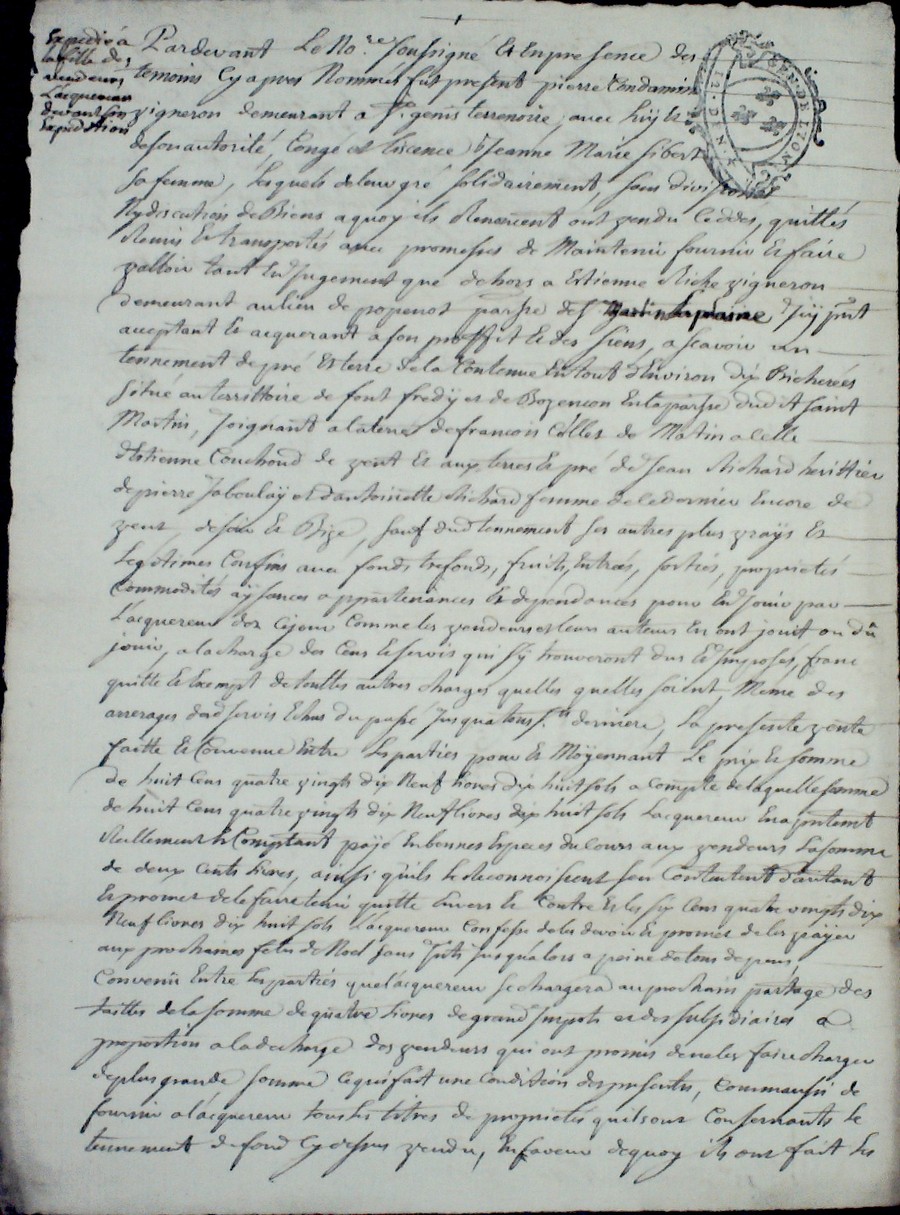 Expedié à
la fille des
vendeurs
L'acquereur
devant son
expedition
GEN. DE LYON
Pardevant Le No.re soussigné Et En presence des
temoins Cy apres Nommés fut present pierre Condamin
vigneron demeurant a S.t genis terrenoire, avec luy Et
de son autorité, Congé et Licence Jeanne Marie sibert
sa femme, Lesquels de leur gré solidairement, sans division
Ny discution de Biens a quoy ils Renoncent ont vendu Ceddés, quittés
Remis Et transportés avec promesses de Maintenir fournir Et faire
valloir tant En Jugement que dehors a Estienne Riche vigneron
demeurant au lieu de parsse de S.t Martin La plaine Icy pnt
acceptant Et acquerant a son proffit Et des siens, a scavoir un
tennement de pré Et terre de la Contenue En tout d'Environ dix Bicherées
situé au territtoire de font fredy et de Bozencon En la parsse dudit saint
Martin, Joignant a la terre de francois de Matin a celle
d'Estienne Couchoud de vent Et aux terres Et pré de Jean Richard herittier
de pierre Jaboulay et d'antoinette Richard femme de ce dernier Encore de
vent de soir Et Bize, sauf dud tennement ses autres plus vrays Et
Legitimes Confins avec fonds trefonds, fruits, Entrées, sorties, proprietés
Commodités aysances appartenances Et dependances pour En Jouir par
L'acquereur dez cejour Comme les vendeurs et leurs auteurs En ont jouit ou dû
jouir, a la charge des Cens Et servis qui s'y trouveront dus Et Imposés, franc
quitte Et Exempt de touttes autres charges quelles quelles soient, Meme des
arrerages dud servis Echus du passé Jusqu'a la derniere, La presente vente
faitte Et Convenue Entre Les parties pour Et Moyennant Le prix Et somme
de huit Cens quatre vingts dix Neuf livres dix huit sols a compte de laquelle somme
de huit Cens quatre vingts dix Neuf livres dix huit sols L'acquereur En a pntemt
Reellement Et Comptant payé En bonnes Especes du Cours aux vendeurs La somme
de deux cents livres, ainsi qu'ils Le Reconnoissent s'en Contentent d'autant
Et promet de le faire tenir quitte Envers Et Contre Et les six Cens quatre vingts dix
Neuf livres dix huit sols L'acquereur Confesse de les devoir Et promet de les payer
aux prochaines fetes de Noel sans jusqu'alors a peine de tous depens,
Convenu Entre Les parties que l'acquereur se chargera au prochain partage des
tailles de la somme de quatre livres de grand Impots et des subsidiaires a
proportion a la decharge des vendeurs qui ont promis de ne les faire charger
de plus grande somme Ce qui fait une Condition des presentes, Comme aussi de
fournir a l'acquereur tous Les titres de proprietés qu'ils ont Consernants Le
tennement de fond Cy dessus vendu, En faveur de quoy ils ont fait Les